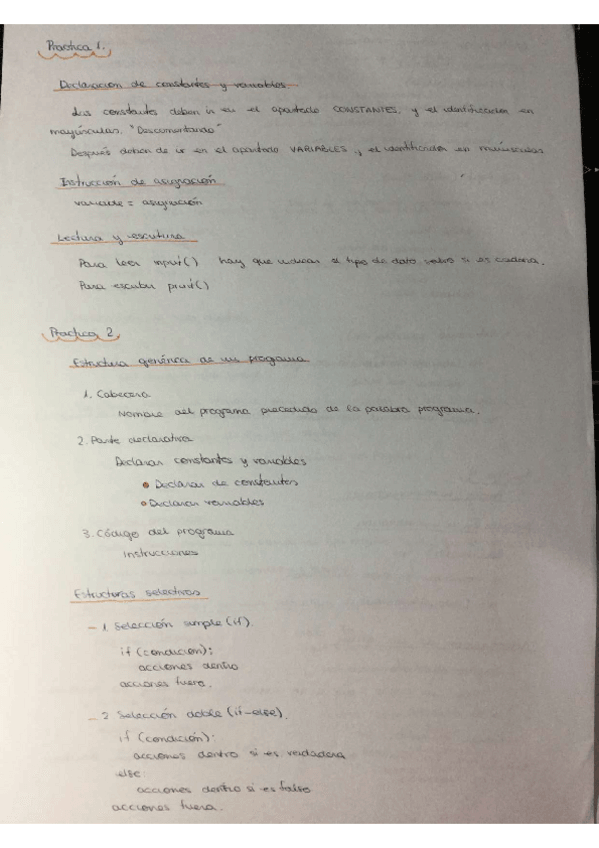 Practica 1.
Declaración de constantes y variables
Las constantes deben ir en el apartado CONSTANTES, y el identificador en
mayúsculas. "Documentando"
Después deben de ir en el apartado VARIABLES, y el identificador en minúsculas
Instrucción de asignación
variable = asignación
Lectura y escritura
Para leer input() hay que indicar el tipo de dato, salvo si es cadena.
Para escribir print()
Practica 2
Estructura genérica de un programa
1. Cabecera
Nombre del programa precedido de la palabra programa.
2. Parte declarativa
Declarar constantes y variables
• Declarar de constantes
• Declarar variables
3. Código del programa
instrucciones
Estructuras selectivas
- 1. Selección simple (if).
if (condición):
acciones dentro
acciones fuera.
- 2 Selección doble (if-else).
if (condición):
acciones dentro si es verdadera
else:
acciones dentro si es falso
acciones fuera.